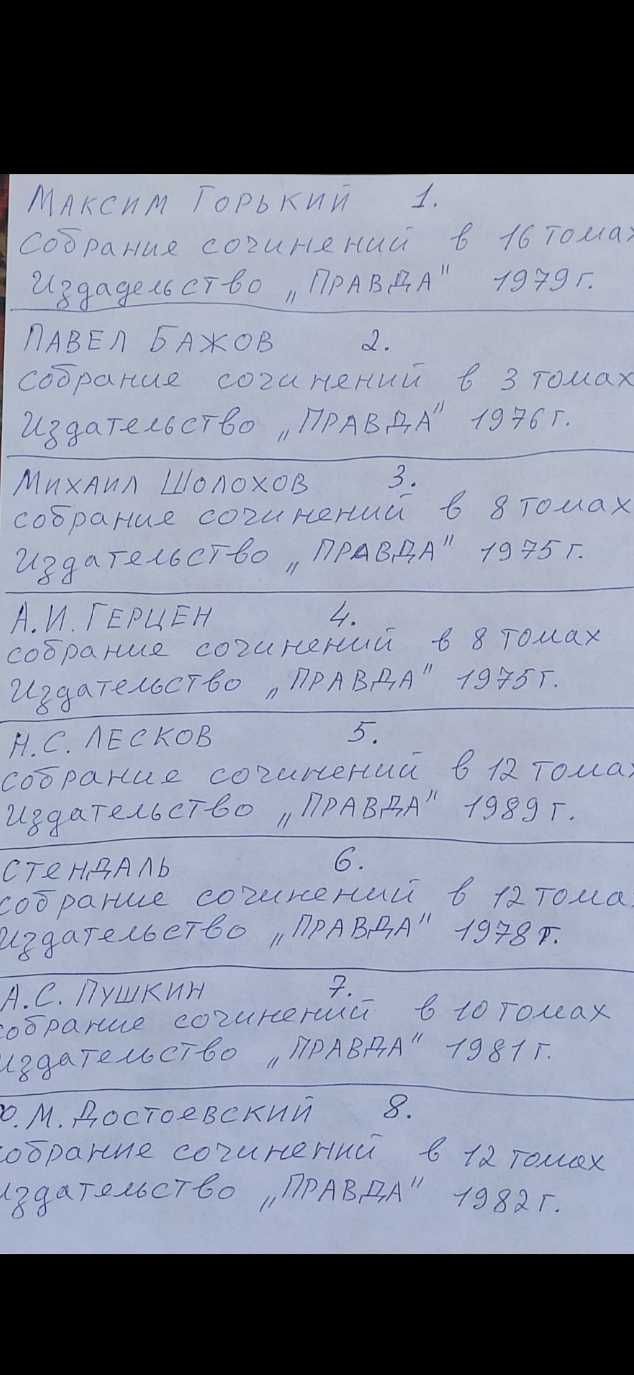 Максим Горький 1.
собрание сочинений в 16 томах
Издадельство „ПРАВДА" 1979 г.
ПАВЕЛ БАЖОВ 2.
собрание сочинений в 3 томах
Издательство „ПРАВДА" 1976 г.
Михаил Шолохов 3.
собрание сочинений в 8 томах
Издательство „ПРАВДА" 1975 г.
А.И. ГЕРЦЕН 4.
собрание сочинений в 8 томах
Издательство „ПРАВДА" 1975 г.
Н.С. ЛЕСКОВ 5.
собрание сочинений в 12 томах
Издательство „ПРАВДА" 1989 г.
СТЕНДАЛЬ 6.
собрание сочинений в 12 тома
Издательство „ПРАВДА" 1978 г.
А.С. ПУШКИН 7.
собрание сочинений в 10 томах
Издательство „ПРАВДА" 1981 г.
Ф.М. Достоевский 8.
собрание сочинений в 12 томах
Издательство „ПРАВДА" 1982 г.